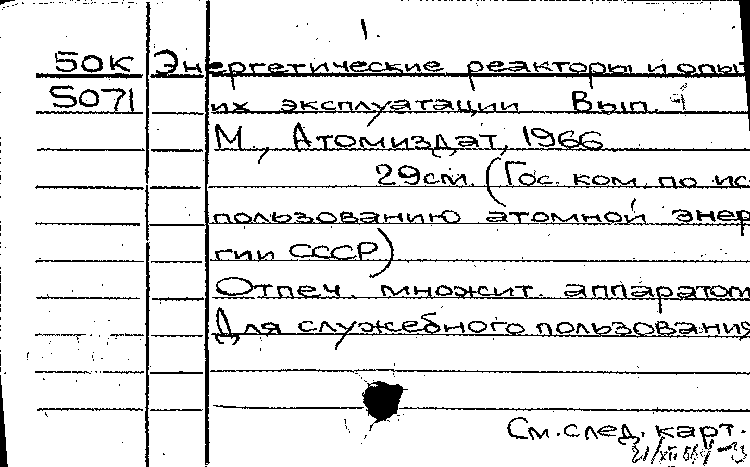 1.
50К Энергетические реакторы и опыт
5071 их эксплуатации Вып.
М., Атомиздат, 1966
29см. (Гос. ком. по ис
пользованию атомной энер
гии СССР)
Отпеч. множит. аппаратом
Для служебного пользования
См. след. карт.